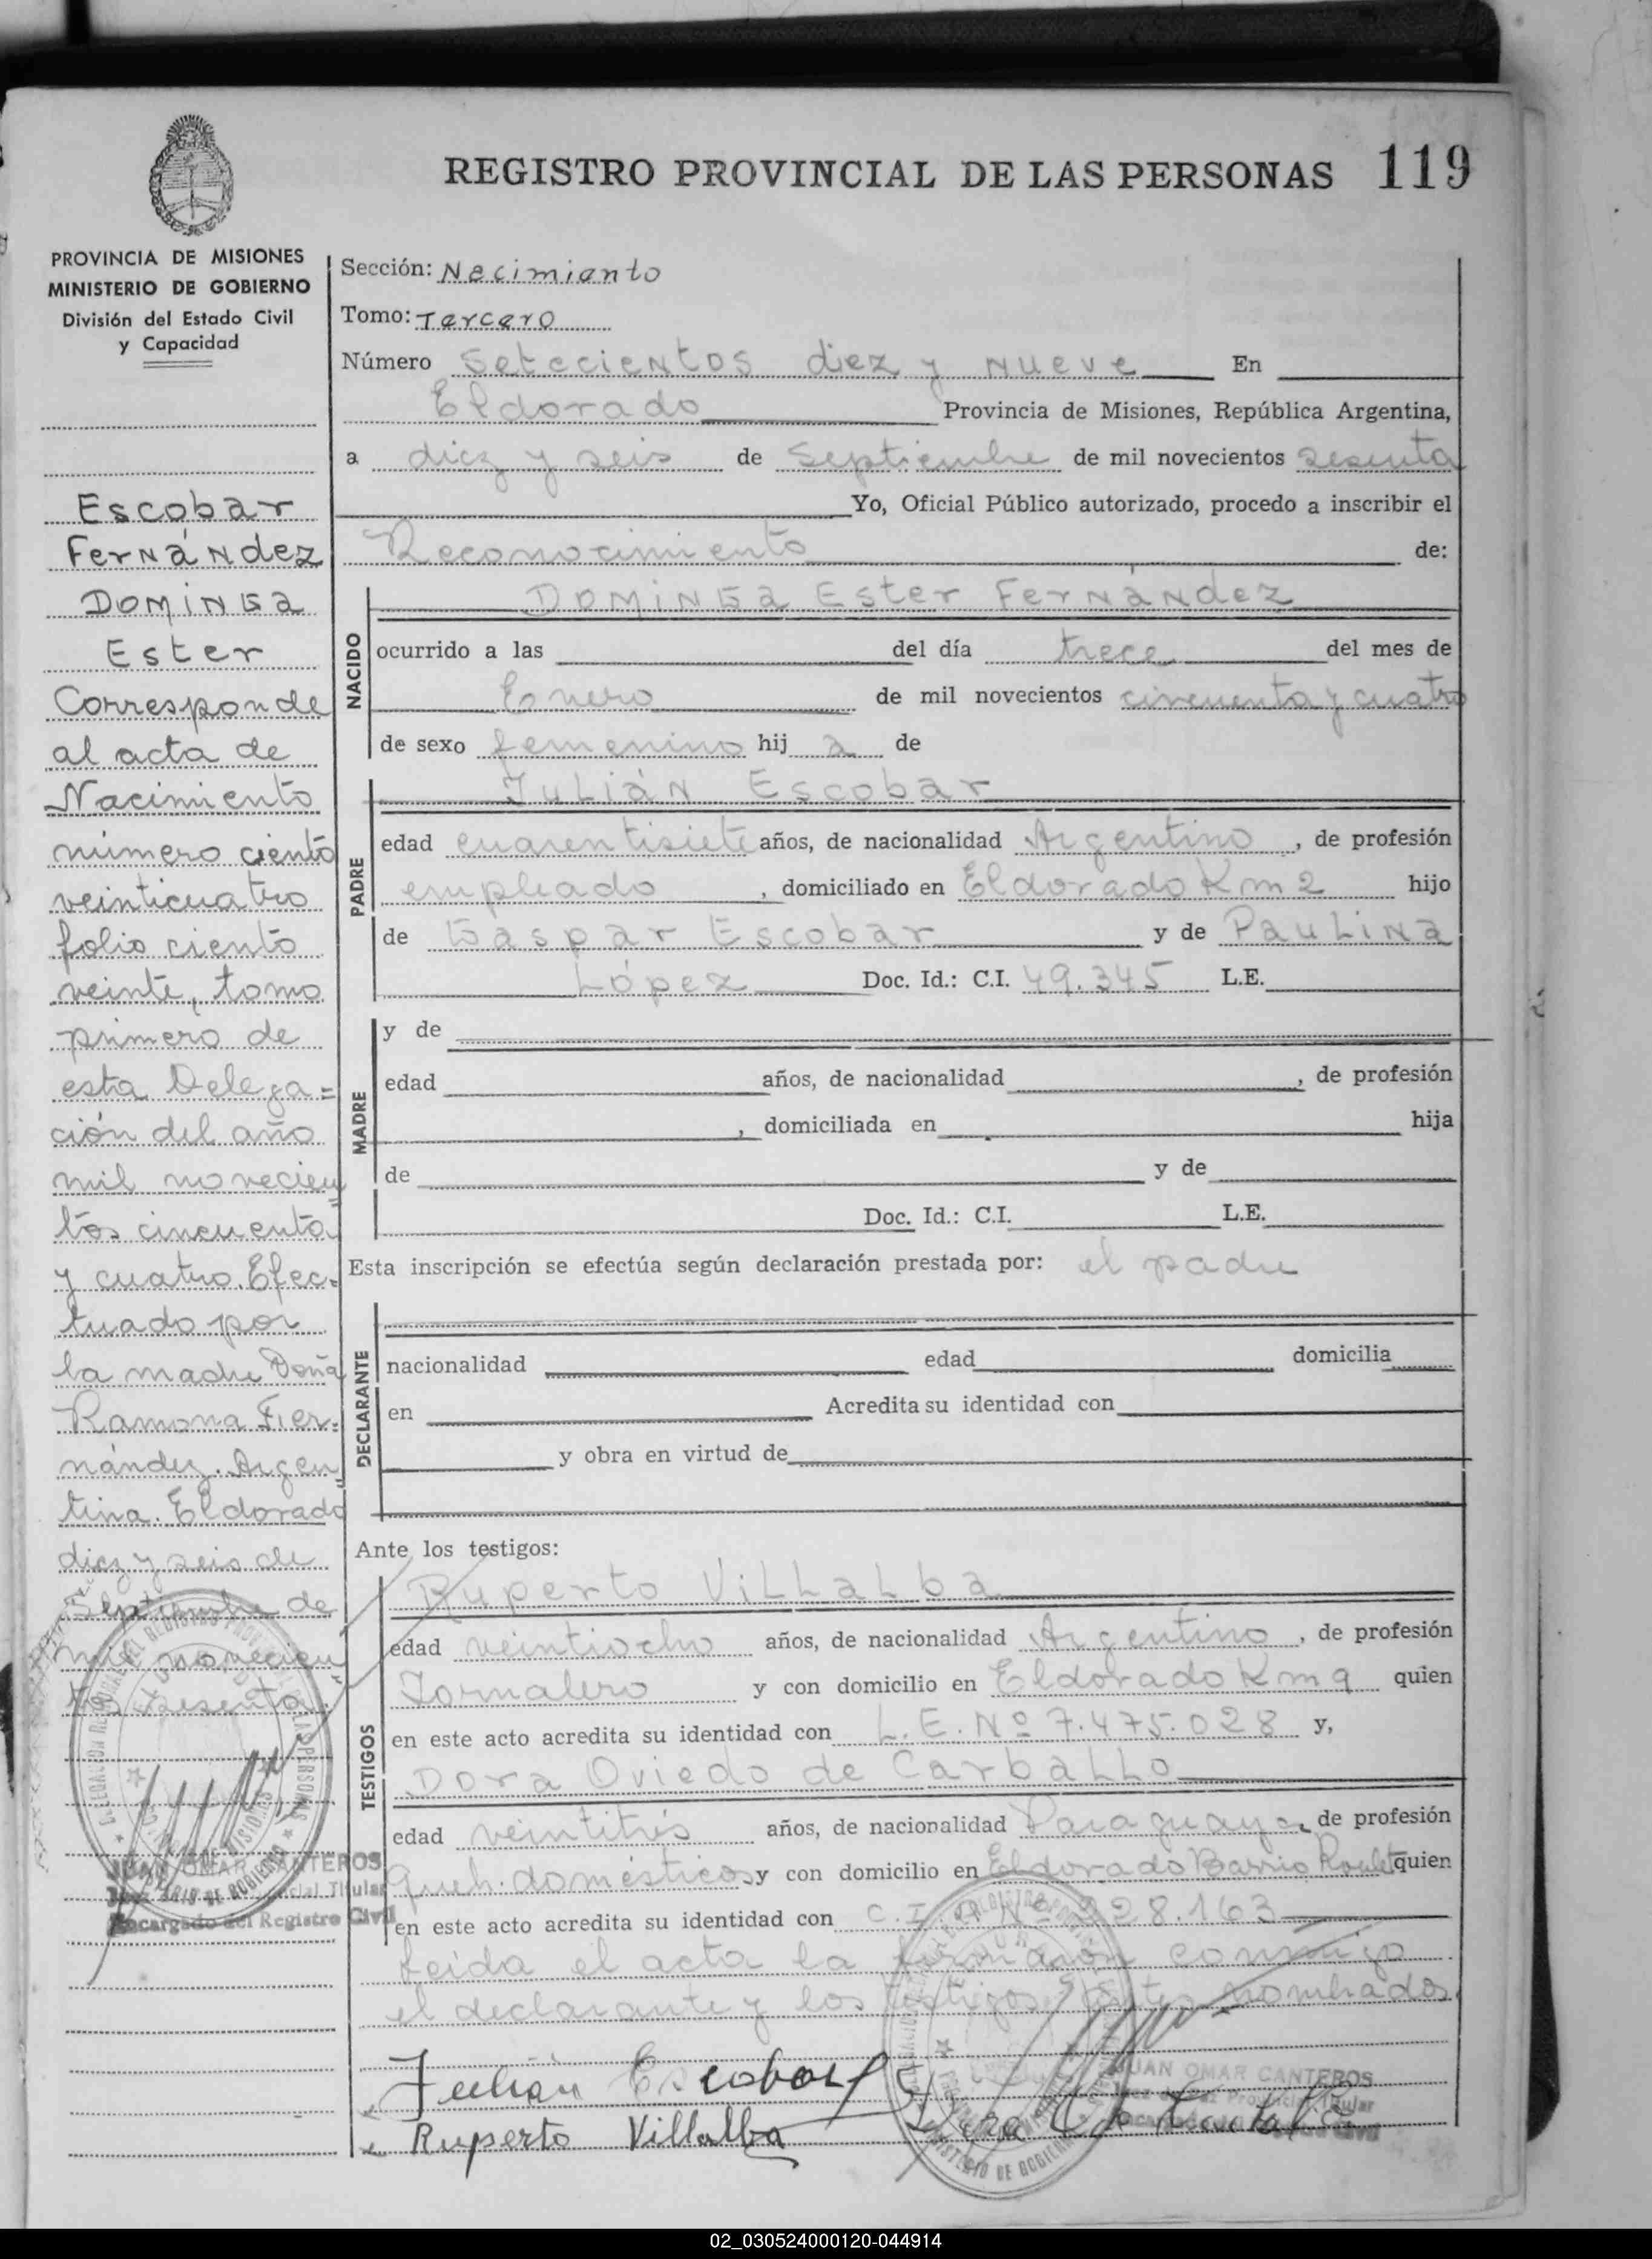 REGISTRO PROVINCIAL DE LAS PERSONAS 119
PROVINCIA DE MISIONES
MINISTERIO DE GOBIERNO
División del Estado Civil
y Capacidad
Escobar
Fernández
Dominga
Ester
Corresponde
al acta de
Nacimiento
número ciento
veinticuatro
folio ciento
veinte, tomo
primero de
esta Delega=
ción del año
mil novecien
tos cincuenta
y cuatro. Efec-
tuado por
la madre Doña
Ramona Fer-
nández. Argen
tina. Eldorado
diez y seis de
Septiembre de
mil novecien
tos sesenta.
JUAN OMAR CANTEROS
Encargado del Registro Civil
Sección: Nacimiento
Tomo: Tercero
Número Setecientos diez y nueve En
Eldorado Provincia de Misiones, República Argentina,
a diez y seis de Septiembre de mil novecientos sesenta
Yo, Oficial Público autorizado, procedo a inscribir el
Reconocimiento de:
NACIDO
Dominga Ester Fernández
ocurrido a las del día trece del mes de
Enero de mil novecientos cincuenta y cuatro
de sexo femenino hij a de
PADRE
Julián Escobar
edad cuarentisiete años, de nacionalidad Argentino, de profesión
empleado, domiciliado en Eldorado Km 2 hijo
de Gaspar Escobar y de Paulina
López Doc. Id.: C.I. 49.345 L.E.
MADRE
y de
edad años, de nacionalidad, de profesión
, domiciliada en hija
de y de
Doc. Id.: C.I. L.E.
Esta inscripción se efectúa según declaración prestada por: el padre
DECLARANTE
nacionalidad edad domicilia
en Acredita su identidad con
y obra en virtud de
Ante los testigos:
TESTIGOS
Ruperto Villalba
edad veintiocho años, de nacionalidad Argentino, de profesión
Jornalero y con domicilio en Eldorado Km 9 quien
en este acto acredita su identidad con L.E. Nº 7.475.028 y,
Dora Oviedo de Carballo
edad veintitrés años, de nacionalidad Paraguaya, de profesión
queh. domésticos y con domicilio en Eldorado Barrio Roulet quien
en este acto acredita su identidad con C.I. Nº 228.163
Leida el acta la firmaron conmigo
el declarante y los testigos antes nombrados
Julián Escobar
JUAN OMAR CANTEROS
Ruperto Villalba
02_030524000120-044914